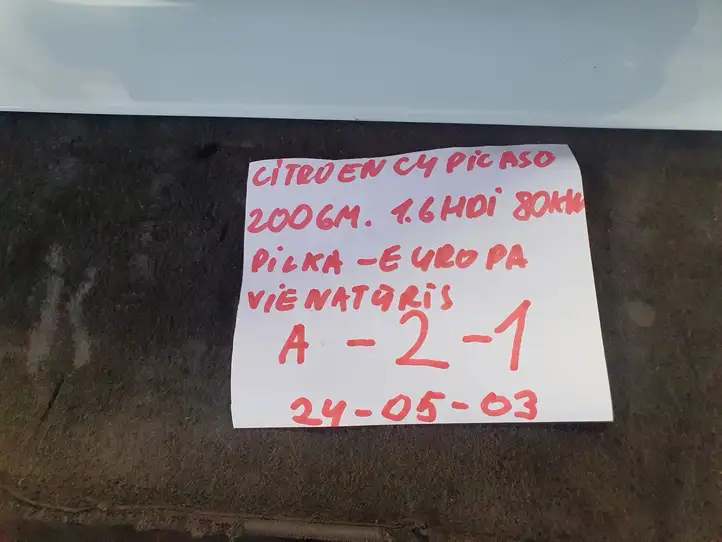 CITROEN C4 PICASO
2006M. 1.6HDI 80KW
PILKA-EUROPA
VIENATŪRIS
A-2-1
24-05-03